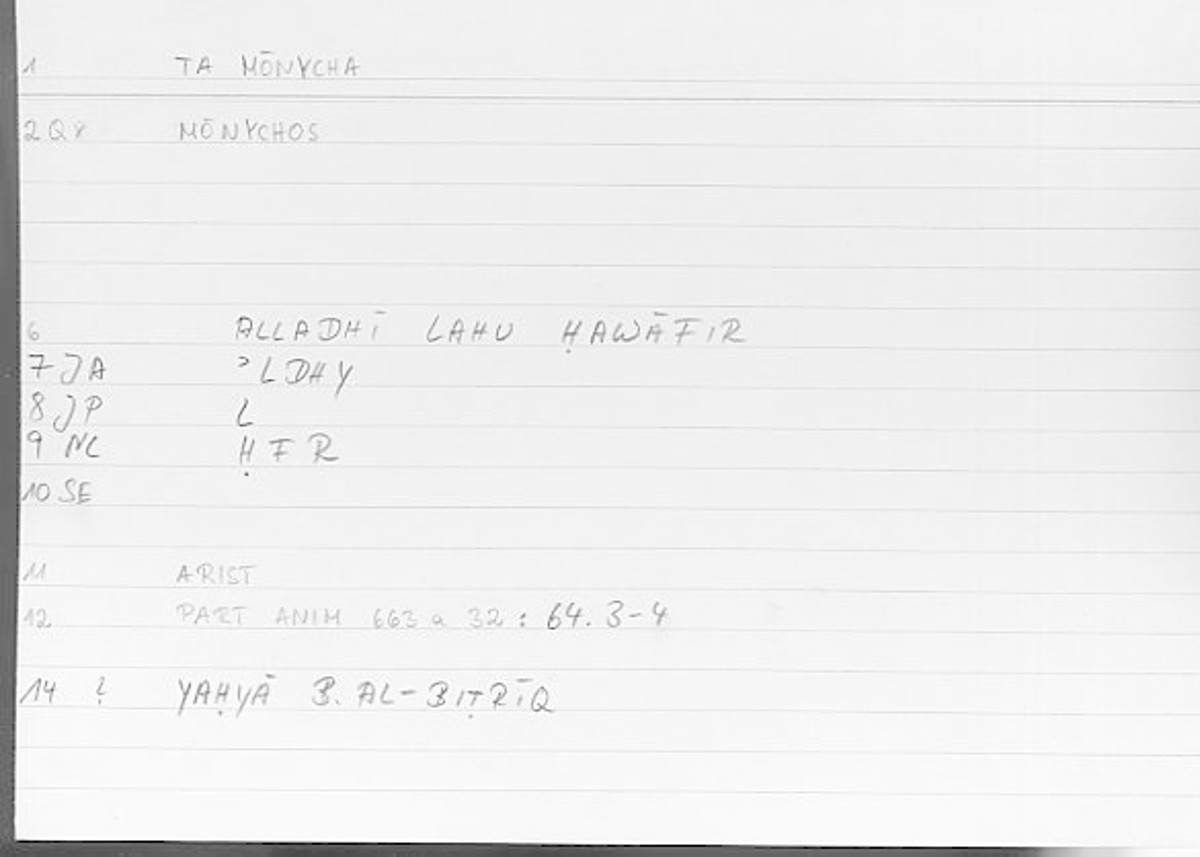 1 TA MŌNYCHA
2 Q8 MŌNYCHOS
6 ALLADHĪ LAHU ḤAWĀFIR
7 JA ʾLDHY
8 JP L
9 NC ḤFR
10 SE
11 ARIST
12 PART ANIM 663 a 32 : 64. 3-4
14 ? YAḤYĀ B. AL-BIṬRĪQ